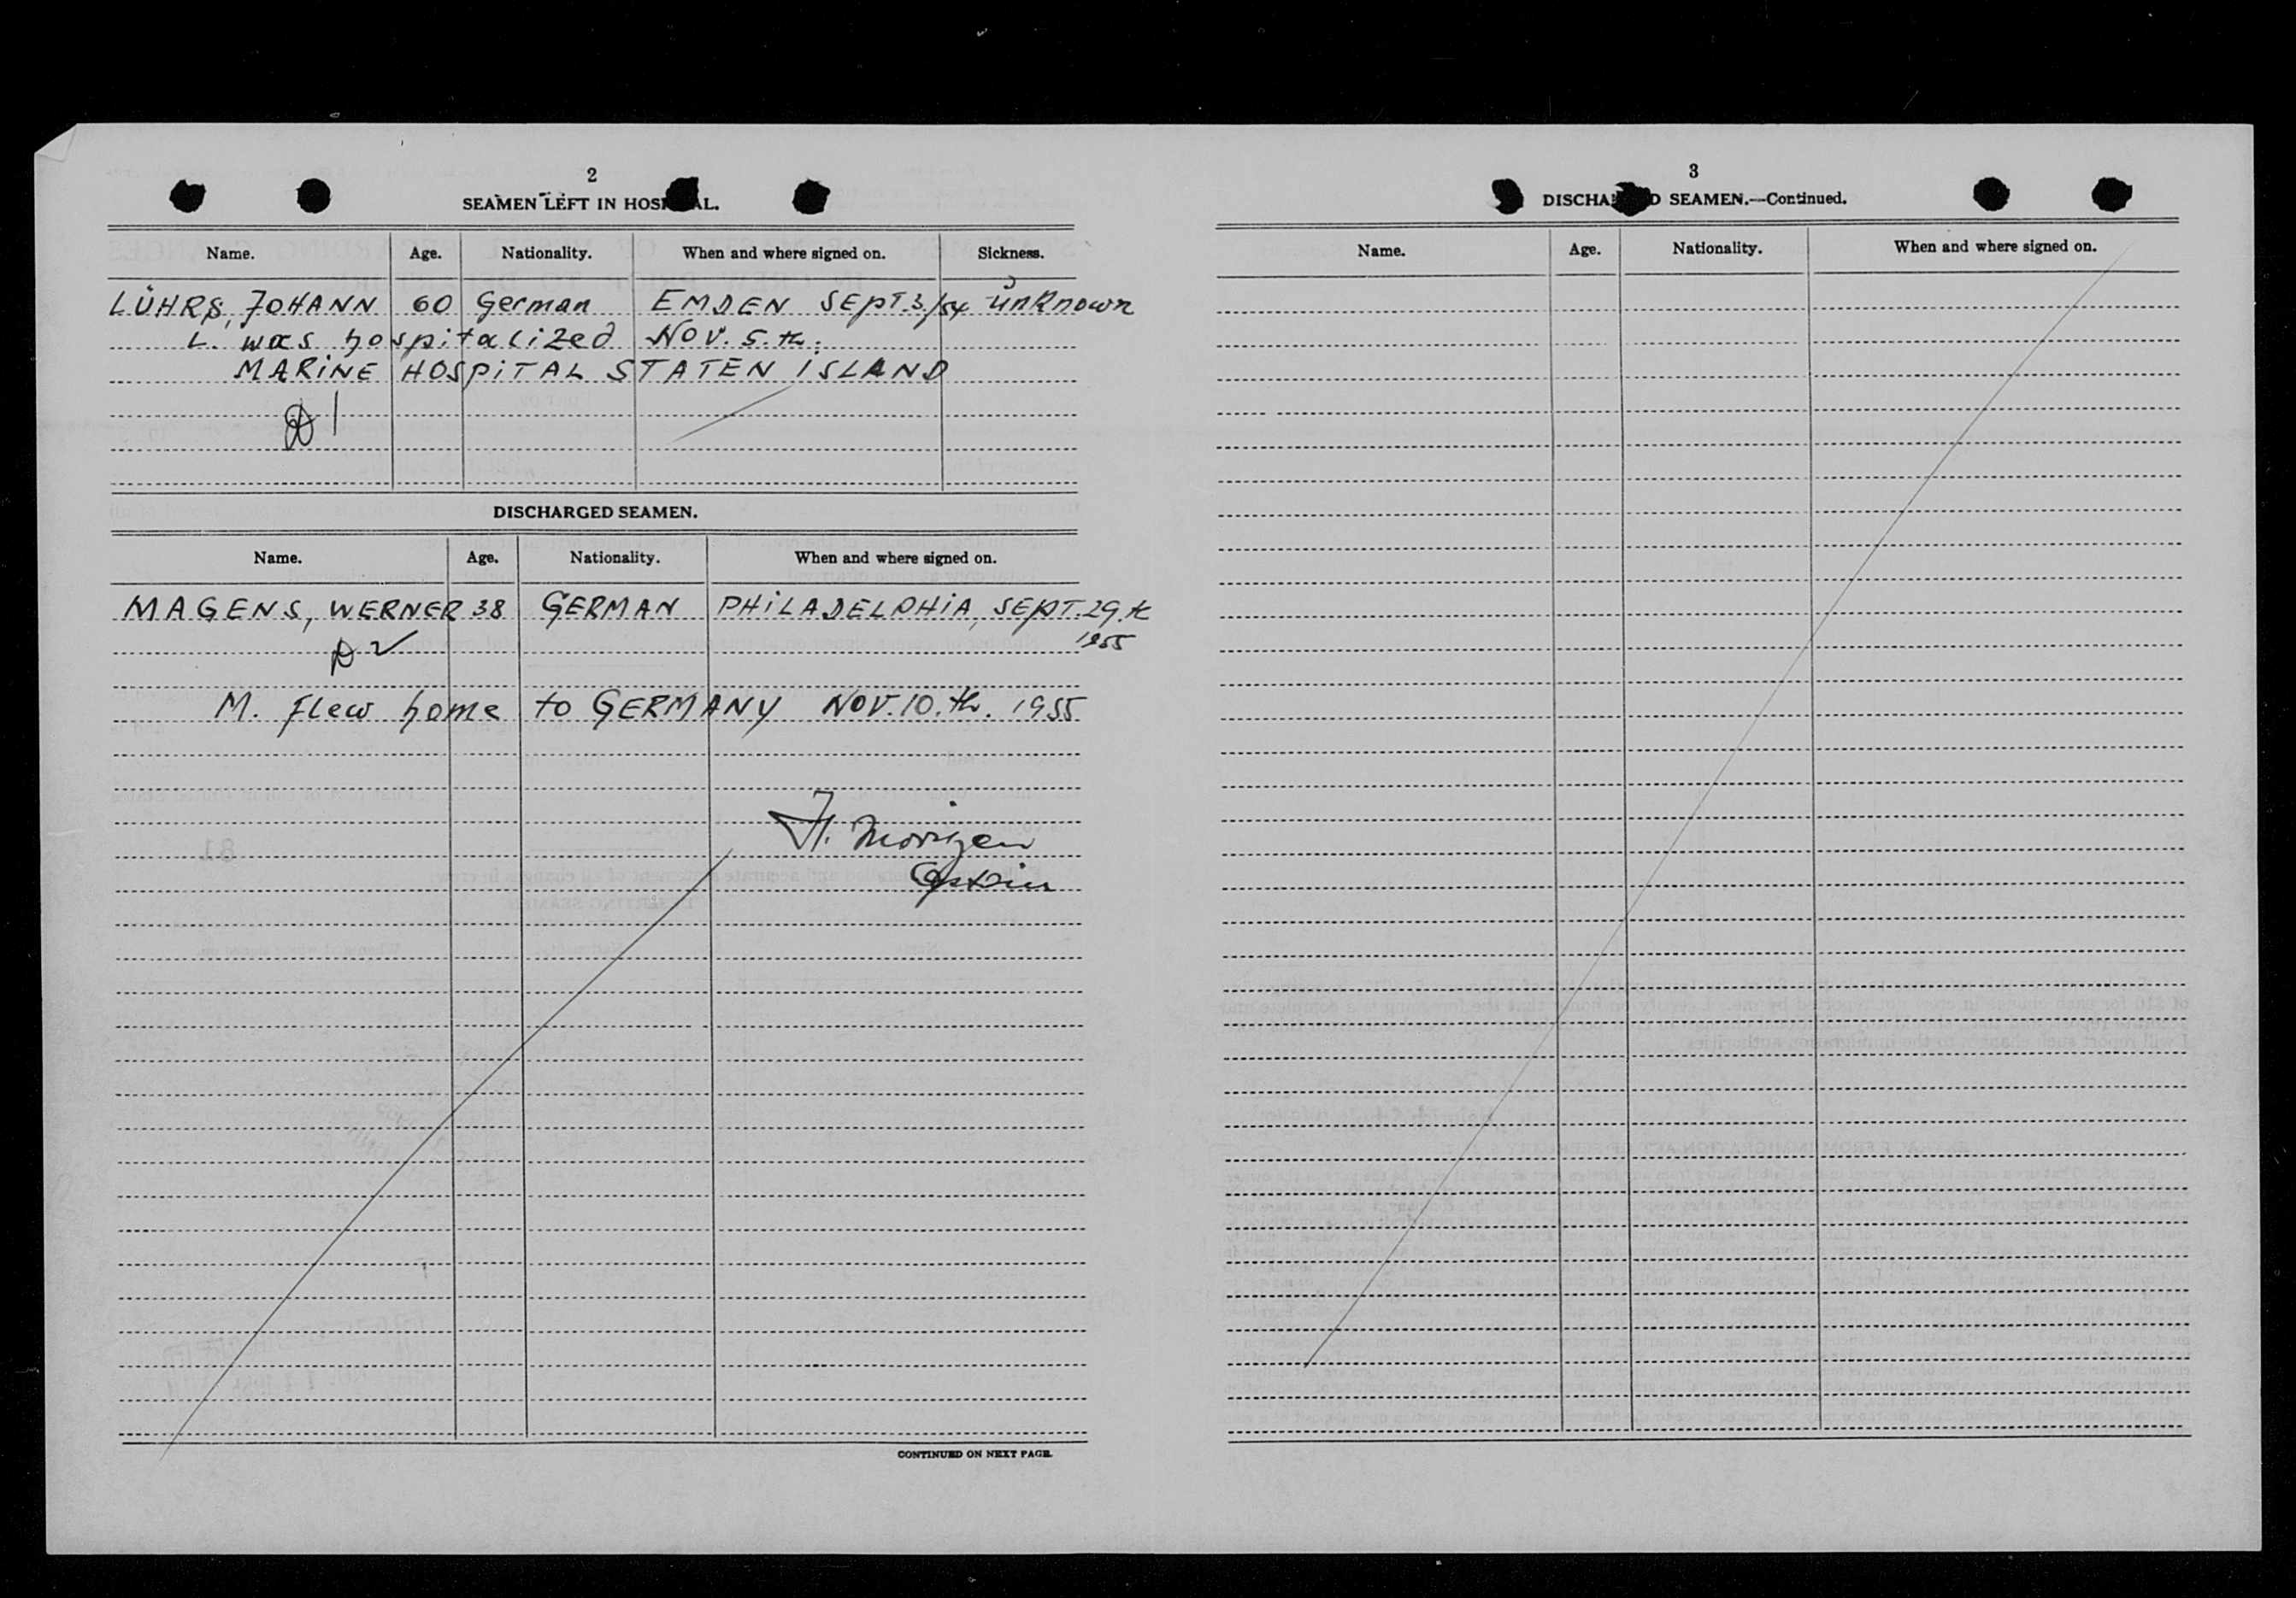 2
SEAMEN LEFT IN HOSPITAL.
Name. Age. Nationality. When and where signed on. Sickness.
LÜHRS, JOHANN 60 German EMDEN SEPT. 3./54 unknown
L. was hospitalized NOV. 5. th.
MARINE HOSPITAL STATEN ISLAND
1
DISCHARGED SEAMEN.
Name. Age. Nationality. When and where signed on.
MAGENS, WERNER 38 GERMAN PHILADELPHIA, SEPT. 29. th
1955
D 2
M. flew home to GERMANY NOV. 10. th. 1955
H.
CONTINUED ON NEXT PAGE.
3
DISCHARGED SEAMEN.—Continued.
Name. Age. Nationality. When and where signed on.